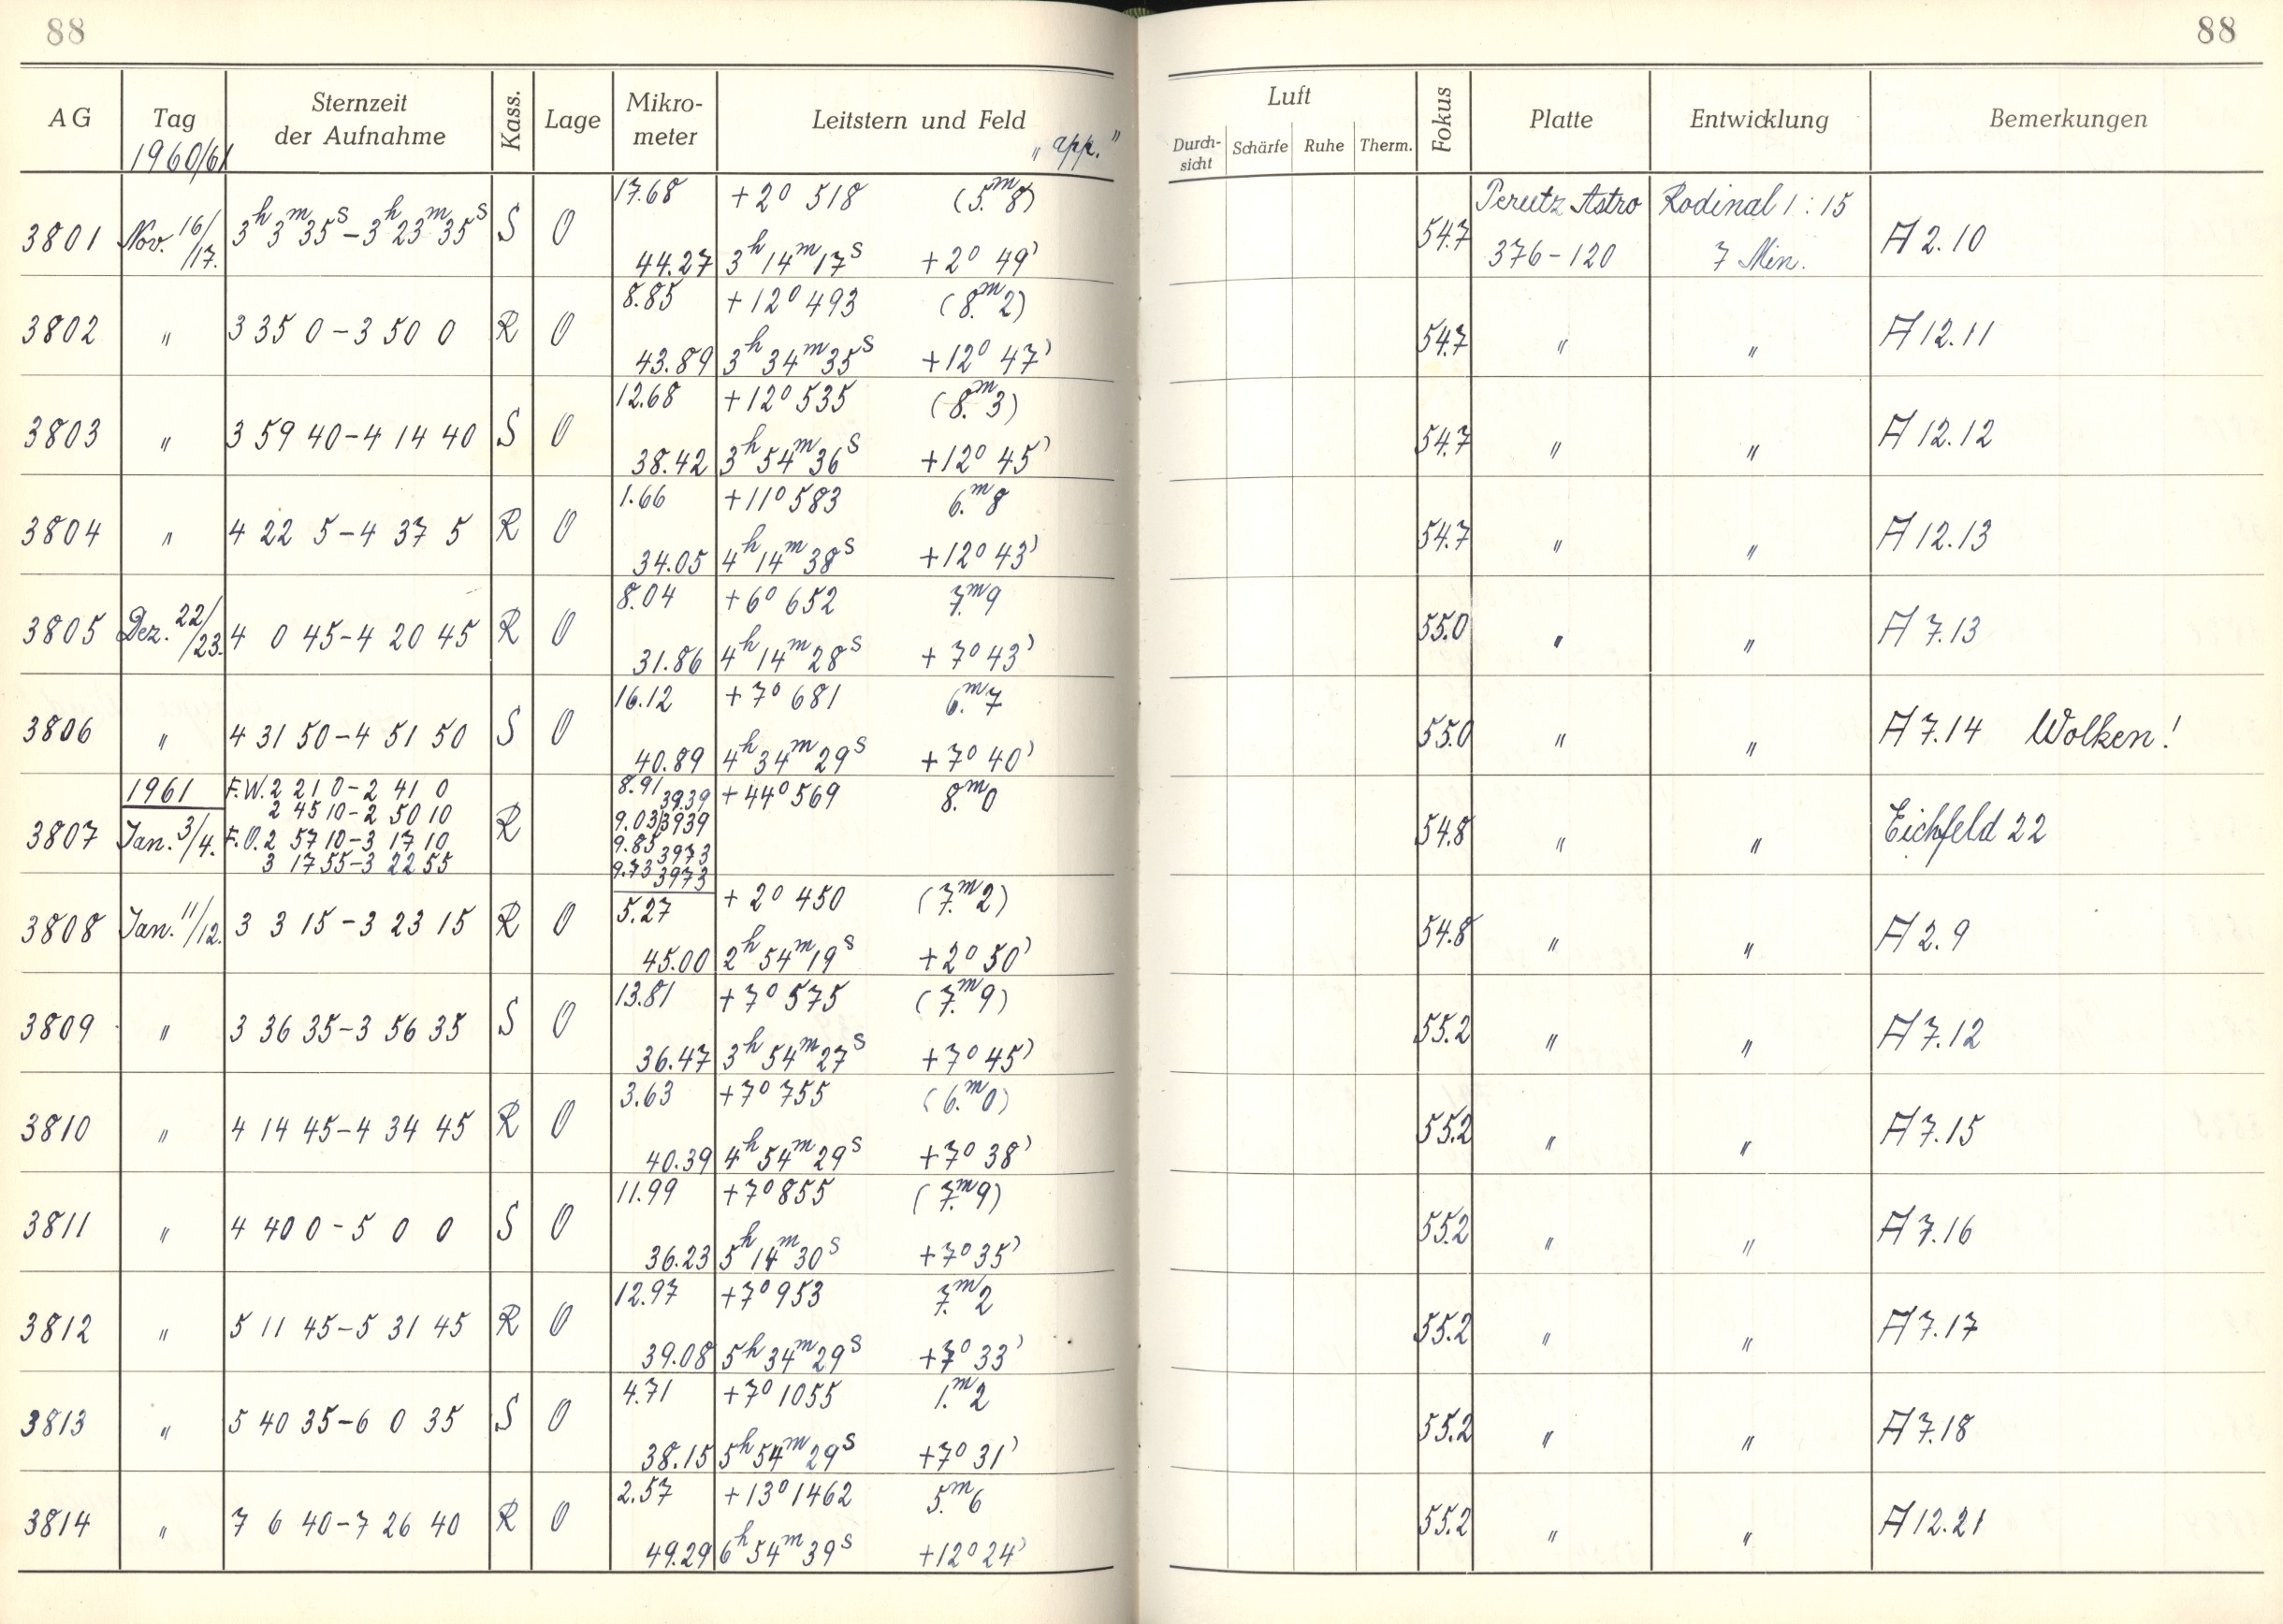 88
88
AG
Tag
1960/61
Sternzeit
der Aufnahme
Kass.
Lage
Mikro-
meter
Leitstern und Feld
"app."
Luft
Durch-
sicht
Schärfe
Ruhe
Therm.
Fokus
Platte
Entwicklung
Bemerkungen
17.68 +2° 518 (5.ᵐ8) Perutz Astro Rodinal 1:15
3801 Nov. 16/17. 3ʰ3ᵐ35ˢ-3ʰ23ᵐ35ˢ S O 54.7 376-120 7 Min. A 2.10
44.27 3ʰ14ᵐ17ˢ +2° 49'
8.85 +12° 493 (8.ᵐ2)
3802 " 3 35 0-3 50 0 R O 54.7 " " A 12.11
43.89 3ʰ34ᵐ35ˢ +12° 47'
12.68 +12° 535 (8.ᵐ3)
3803 " 3 59 40-4 14 40 S O 54.7 " " A 12.12
38.42 3ʰ54ᵐ36ˢ +12° 45'
1.66 +11° 583 6.ᵐ8
3804 " 4 22 5-4 37 5 R O 54.7 " " A 12.13
34.05 4ʰ14ᵐ38ˢ +12° 43'
8.04 +6° 652 7.ᵐ9
3805 Dez. 22/23. 4 0 45-4 20 45 R O 55.0 " " A 7.13
31.86 4ʰ14ᵐ28ˢ +7° 43'
16.12 +7° 681 6.ᵐ7
3806 " 4 31 50-4 51 50 S O 55.0 " " A 7.14 Wolken!
40.89 4ʰ34ᵐ29ˢ +7° 40'
1961 F.W. 2 21 0-2 41 0 8.91 39.39 +44° 569 8.ᵐ0
2 45 10-2 50 10 9.03 3939
3807 Jan. 3/4. F.O. 2 57 10-3 17 10 R 9.85 3973 54.8 " " Eichfeld 22
3 17 55-3 22 55 9.73 3973
5.27 +2° 450 (7.ᵐ2)
3808 Jan. 11/12. 3 3 15-3 23 15 R O 54.8 " " A 2.9
45.00 2ʰ54ᵐ19ˢ +2° 50'
13.81 +7° 575 (7.ᵐ9)
3809 " 3 36 35-3 56 35 S O 55.2 " " A 7.12
36.47 3ʰ54ᵐ27ˢ +7° 45'
3.63 +7° 755 (6.ᵐ0)
3810 " 4 14 45-4 34 45 R O 55.2 " " A 7.15
40.39 4ʰ54ᵐ29ˢ +7° 38'
11.99 +7° 855 (7.ᵐ9)
3811 " 4 40 0-5 0 0 S O 55.2 " " A 7.16
36.23 5ʰ14ᵐ30ˢ +7° 35'
12.97 +7° 953 7.ᵐ2
3812 " 5 11 45-5 31 45 R O 55.2 " " A 7.17
39.08 5ʰ34ᵐ29ˢ +7° 33'
4.71 +7° 1055 1.ᵐ2
3813 " 5 40 35-6 0 35 S O 55.2 " " A 7.18
38.15 5ʰ54ᵐ29ˢ +7° 31'
2.57 +13° 1462 5.ᵐ6
3814 " 7 6 40-7 26 40 R O 55.2 " " A 12.21
49.29 6ʰ54ᵐ39ˢ +12° 24'